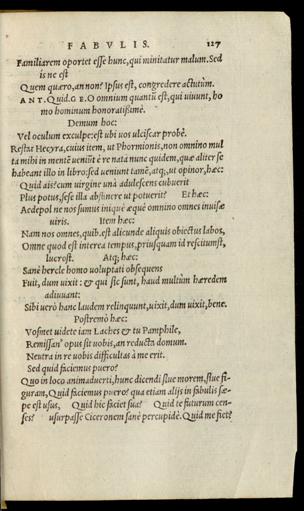 FABVLIS. 127
Familiarem oportet esse hunc, qui minitatur malum. Sed
is ne est
Quem quæro, an non? Ipsus est, congredere actutùm.
ANT. Quid. GE. O omnium quantũ est, qui uiuunt, ho
mo hominum honoratißimè.
Demum hoc:
Vel oculum exculpe: est ubi uos ulciscar probè.
Restat Hecyra, cuius item, ut Phormionis, non omnino mul
ta mihi in mentẽ ueniũt è re nata nunc quidem, quæ aliter se
habeant illo in libro: sed ueniunt tamẽ, atq;, ut opinor, hæc:
Quid ais? cum uirgine unà adulescens cubuerit
Plus potus, sese illa abstinere ut potuerit? Et hæc:
Aedepol ne nos sumus iniquè æquè omnino omnes inuisæ
uiris. Item hæc:
Nam nos omnes, quib. est alicunde aliquis obiectus labos,
Omne quod est interea tempus, priusquam id rescitumst,
lucrost. Atq; hæc:
Sanè hercle homo uoluptati obsequens
Fuit, dum uixit: & qui sic sunt, haud multùm hæredem
adiuuant:
Sibi uerò hanc laudem relinquunt, uixit, dum uixit, bene.
Postremò hæc:
Vosmet uidete iam Laches & tu Pamphile,
Remissan' opus sit uobis, an reducta domum.
Neutra in re uobis difficultas à me erit.
Sed quid faciemus puero?
Quo in loco animaduerti, hunc dicendi siue morem, siue fi-
guram, Quid faciemus puero? qua etiam alijs in fabulis sæ-
pe est usus, Quid hic faciet sua? Quid te futurum cen-
ses? usurpasse Ciceronem sanè percupidè. Quid me fiet?